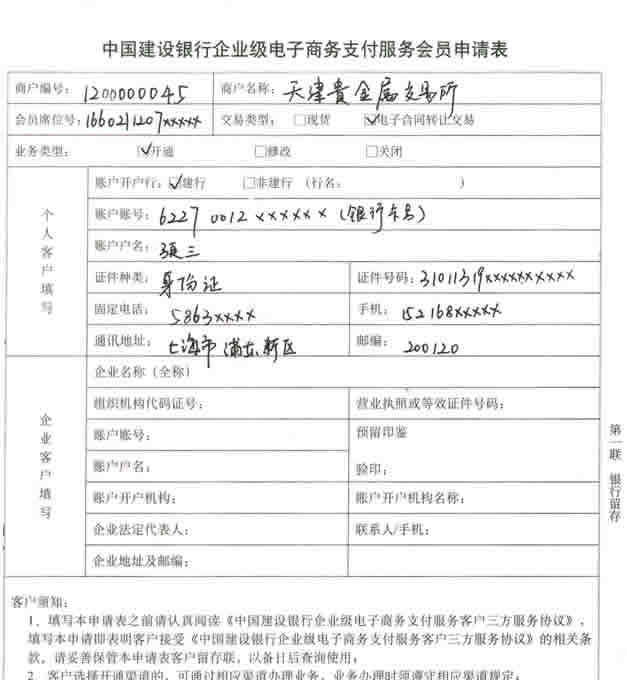 中国建设银行企业级电子商务支付服务会员申请表
商户编号：1200000045 商户名称：天津贵金属交易所
会员席位号：1660211207xxxxx 交易类型：□现货 ☑电子合同转让交易
业务类型： ☑开通 □修改 □关闭
个人客户填写
账户开户行：☑建行 □非建行（行名： ）
账户账号：6227 0012 xxxxxx（银行卡号）
账户户名：张三
证件种类：身份证 证件号码：31011319xxxxxxxxxx
固定电话：5863xxxx 手机：152168xxxxx
通讯地址：上海市浦东新区 邮编：200120
企业客户填写
企业名称（全称）
组织机构代码证号： 营业执照或等效证件号码：
账户账号： 预留印鉴
账户户名： 验印：
账户开户机构： 账户开户机构名称：
企业法定代表人： 联系人/手机：
企业地址及邮编：
第一联 银行留存
客户须知：
1、填写本申请表之前请认真阅读《中国建设银行企业级电子商务支付服务客户三方服务协议》，
填写本申请即表明客户接受《中国建设银行企业级电子商务支付服务客户三方服务协议》的相关条
款，请妥善保管本申请表客户留存联，以备日后查询使用；
2、客户选择开通渠道的，可通过相应渠道办理业务，业务办理时须遵守相应渠道规定；